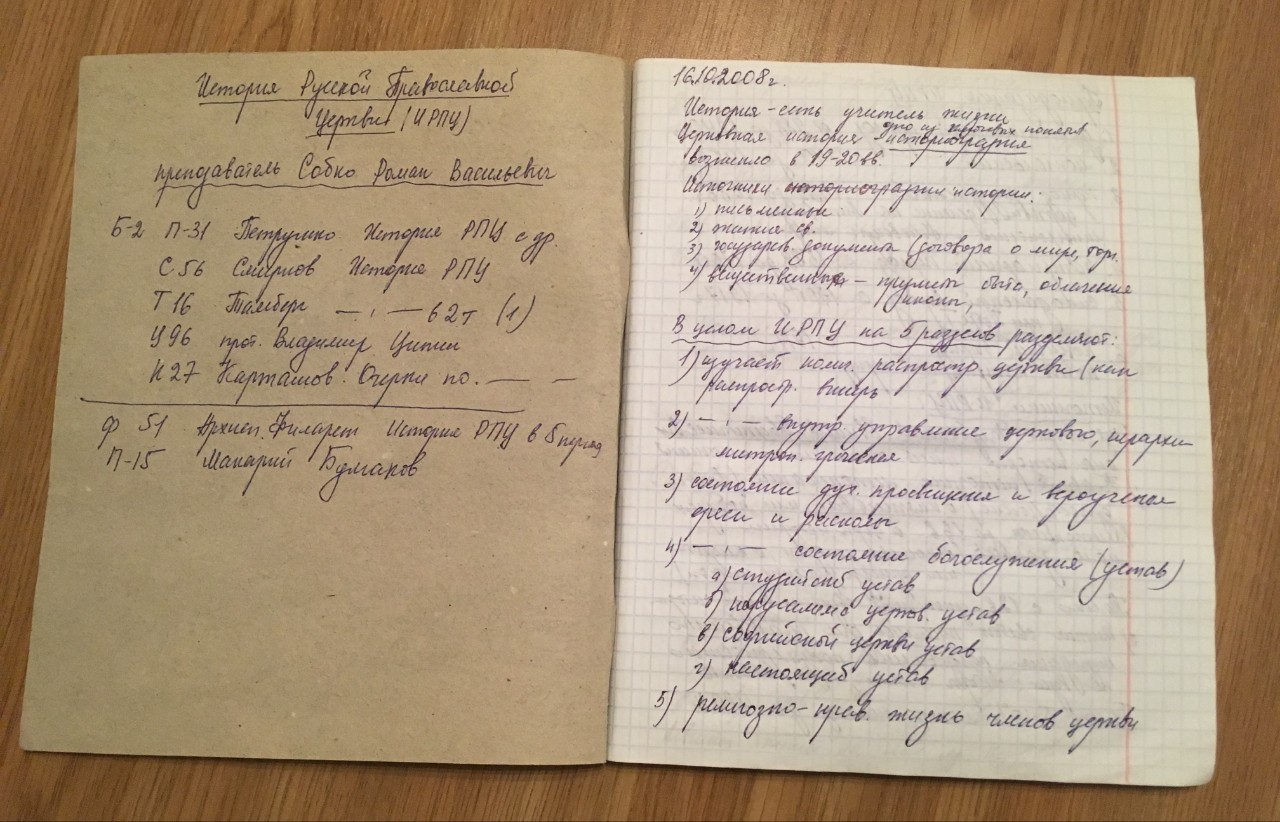 История Русской Православной
Церкви (ИРПЦ)
преподаватель Собко Роман Васильевич
Б-2 П-31 Петрушко История РПЦ с др.
С 56 Смирнов История РПЦ
Т 16 Тальберг — „ — в 2т (1)
Ц 96 прот. Владимир Цыпин
К 27 Карташов. Очерки по. — —
Ф 51 Архиеп. Филарет История РПЦ в 5 период
П-15 Макарий Булгаков
16.10.2008г.
История - есть учитель жизни
одно из понятий
Церковная история историография
возникло в 19-20вв.
Источники историографии истории:
1) письменные
2) жития св.
3) государств. документы (договора о мире, торг.
4) вещественные – предметы быта, облачения
иконы,
В целом ИРПЦ на 5 разделов разделяют:
1) изучает распростр. церкви (как
распростр. вширь
2) — „ — внутр. управление церковью, иерархи
митроп.
3) состояние дух. просвещения и вероучения
ереси и расколы
4) — „ — состояние богослужения (устав)
а) студийский устав
б) иерусалимс церков. устав
в) софийской церкви устав
г) настоящий устав
5) религозно-нрав. жизнь членов церкви